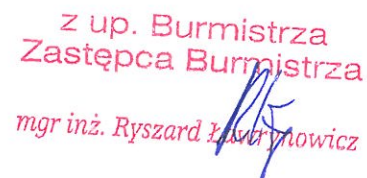 z up. Burmistrza
Zastępca Burmistrza
mgr inż. Ryszard Ławrynowicz